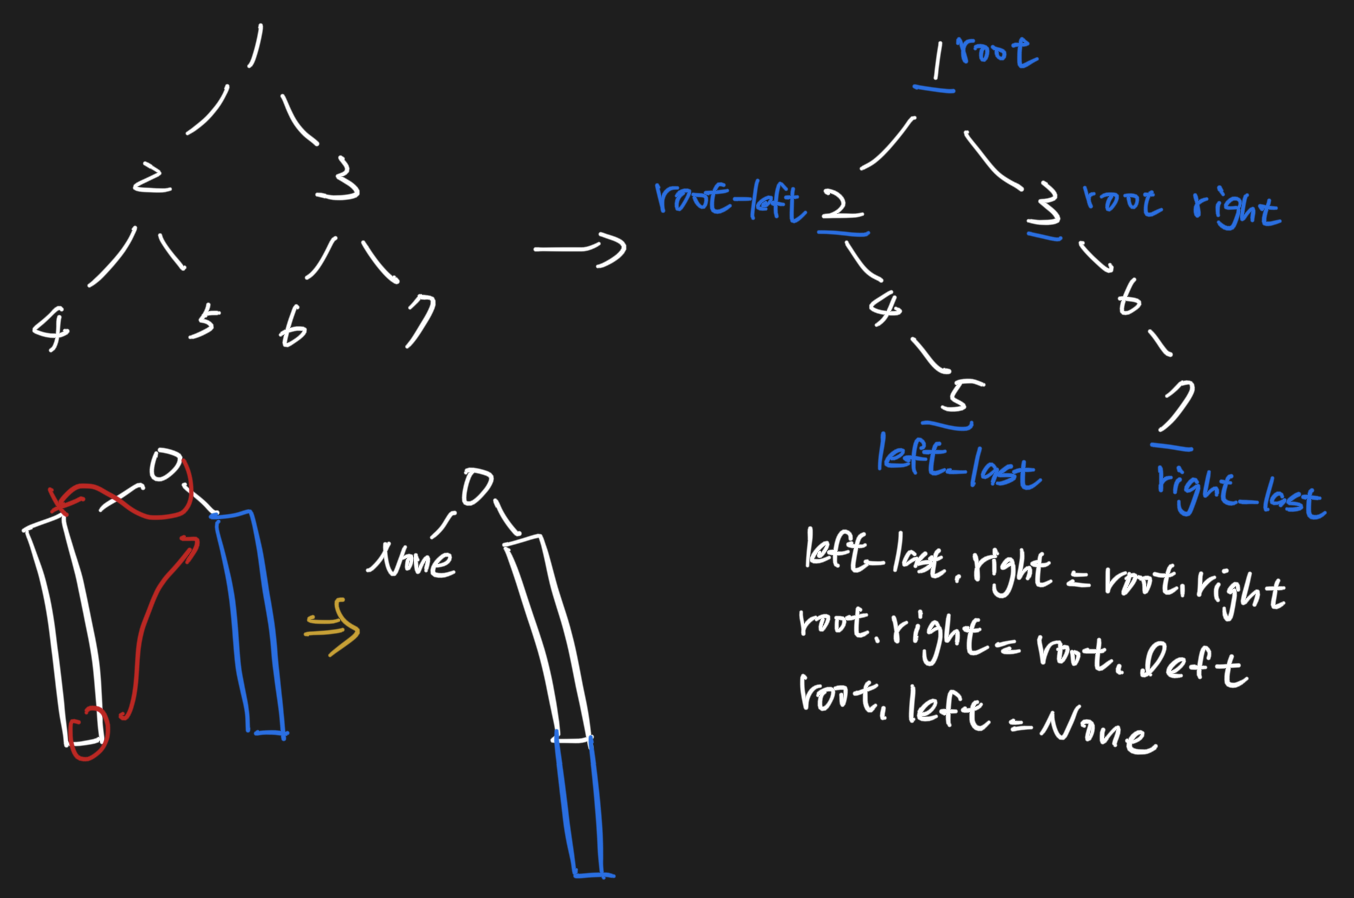 1
2 3
4 5 6 7
1 root
root-left 2 3 root right
4 6
5 7
left_last right_last
0 0
None
left_last.right = root.right
root.right = root.left
root.left = None